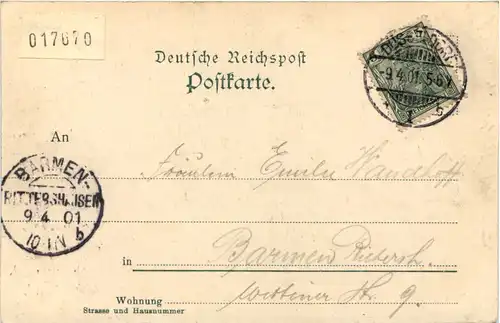 017670
Deutsche Reichspost
Postkarte.
DÜSSELDORF
9.4.01.5-6
1 s
An
BARMEN-
RITTERSHAUSEN
9 4 01
10-11N b
Fräulein Emilie Wandhoff
in Barmen Rittersh.
Wohnung Wettiner Str. 9.
Strasse und Hausnummer